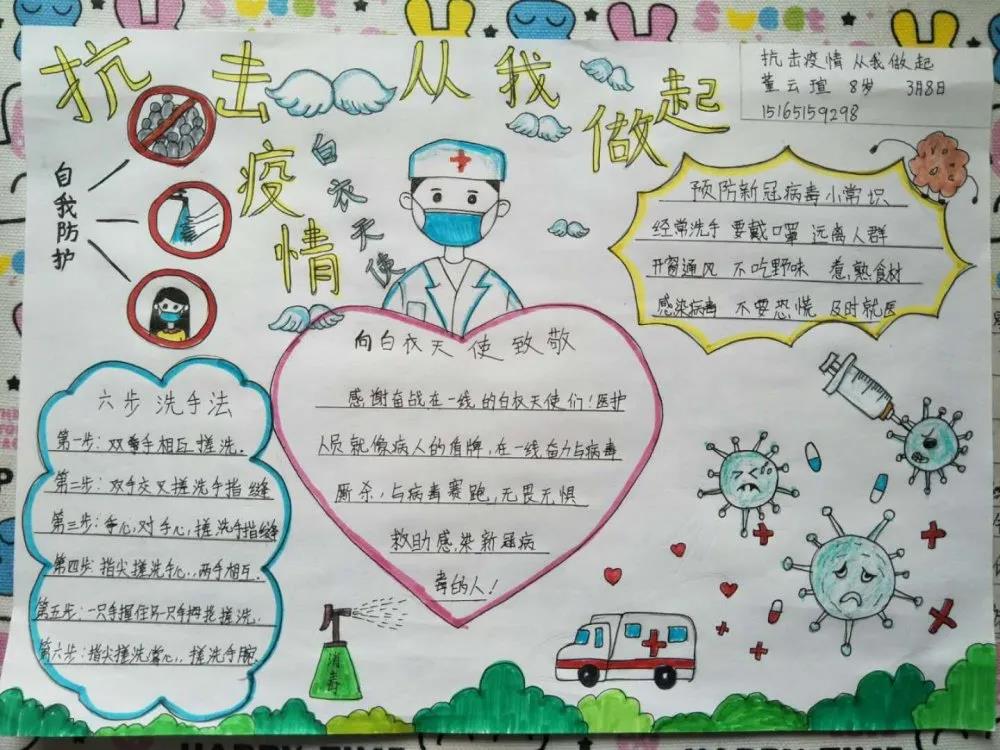 抗击疫情
从我做起
抗击疫情从我做起
董云瑄 8岁 3月8日
15165159298
自我防护
白衣天使
预防新冠病毒小常识
经常洗手 要戴口罩 远离人群
开窗通风 不吃野味 煮熟食材
感染病毒 不要恐慌 及时就医
向白衣天使致敬
感谢奋战在一线的白衣天使们！医护
人员就像病人的盾牌，在一线奋力与病毒
厮杀，与病毒赛跑，无畏无惧
救助感染新冠病
毒的人！
六步洗手法
第一步：双手相互搓洗.
第二步：双手交叉搓洗手指缝
第三步：手心，对手心，搓洗手指缝
第四步：指尖搓洗手心，两手相互.
第五步：一只手握住另一只手拇指搓洗.
第六步：指尖搓洗掌心，搓洗手腕.
消毒
Sweet